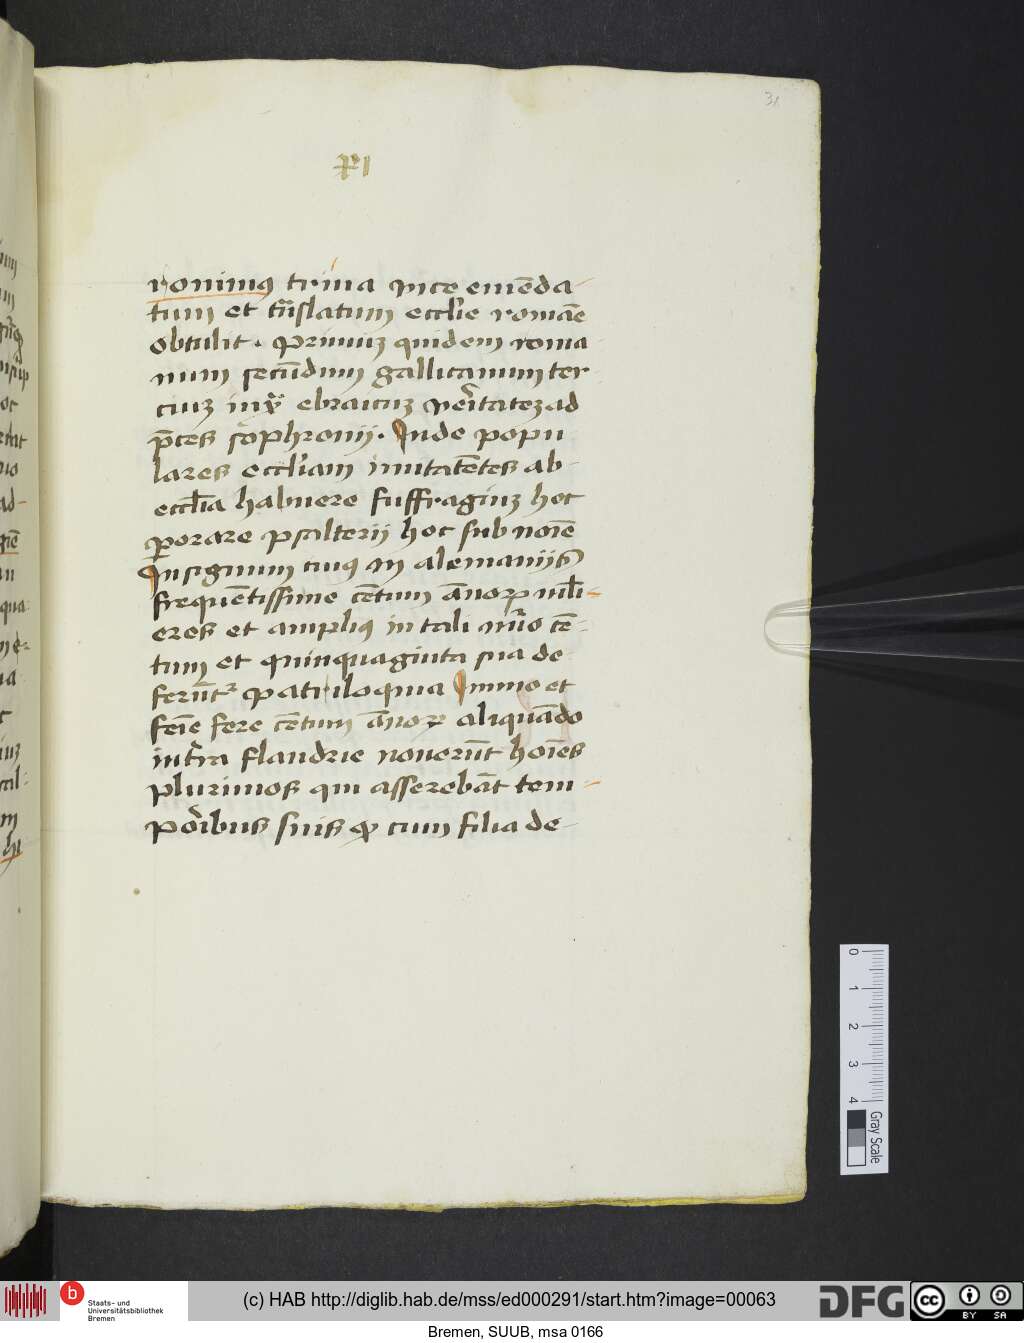 31
ronimꝯ trina vice emēda-
tum et trāslatum eccl̄ie romāe
obtulit. Primuꝫ quidem roma
num secūdum gallicanum ter
ciuꝫ ebraicuꝫ v̄eritateꝫ ad
p̄ces sophronij. Inde popu
lares eccl̄iam imitātes ab-
eccl̄ia habuere suffragiuꝫ hoc
ꝑorare psalterij hoc sub noīe
Insignum cuiꝯ in alemaniis
frequētissime cētum ānoꝝ muli-
eres et amplius in tali nūo cē-
tum et quinquaginta sua de
ferūt᷑ patriloquia Immo et
fere cētum ānoꝝ aliquādo
intra flandrie nouerūt hoīes
plurimos qui asserebāt tem-
poribus suis ꝙ cum filia de-
0 1 2 3 4
Gray Scale
b
Staats- und
Universitätsbibliothek
Bremen
(c) HAB http://diglib.hab.de/mss/ed000291/start.htm?image=00063
DFG
cc
BY SA
Bremen, SUUB, msa 0166